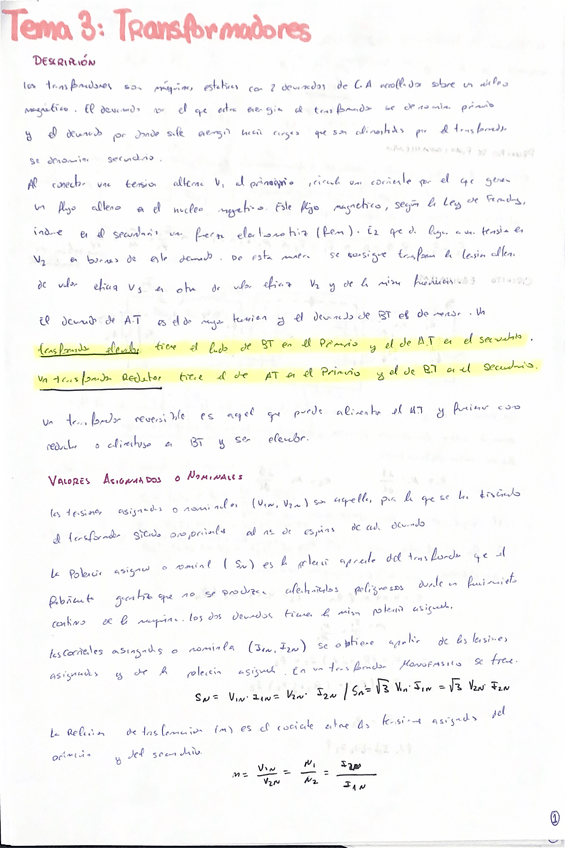 Tema 3: Transformadores
DESCRIPCIÓN
Los transformadores son máquinas estáticas con 2 devanados de C.A arrollados sobre un núcleo
magnético. El devanado por el que entra energía al transformador se denomina primario
y el devanado por donde sale energía hacia cargas que son alimentadas por el transformador
se denomina secundario.
Al conectar una tensión alterna V1 al principio, circula una corriente por el que genera
un flujo alterno en el nucleo magnetico. Este flujo magnetico, según la Ley de Faraday,
induce en el secundario un fuerza electromotriz (fem). E2 que da lugar a un tensión en
V2 en bornas de este devanado. De esta manera se consigue transformar la tensión alterna
de valor eficaz V1 en otra de valor eficaz V2 y de la misma frecuencia.
El devanado de A.T es el de mayor tension y el devanado de BT el de menor. Un
transformador elevador tiene el lado de BT en el Primario y el de A.T en el secundario.
Un transformador Reductor tiene el de AT en el Primario y el de BT en el Secundario.
Un transformador reversible es aquel que puede alimentar el AT y funcionar como
reductor o alimentarse en BT y ser elevador.
VALORES ASIGNADOS O NOMINALES
Las tensiones asignadas o nominales (V1N, V2N) son aquellas para la que se ha diseñado
el transformador siendo proporcionales al nº de espiras de cada devanado
La Potencia asignada o nominal (SN) es la potencia aparente del transformador que el
fabricante garantiza que no se producen calentamientos peligrosos durante un funcionamiento
continuo de la maquina. Los dos devanados tienen la misma potencia asignada.
Las corrientes asignadas o nominales (I1N, I2N) se obtiene apartir de las tensiones
asignadas y de la potencia asignada. En un transformador MONOFÁSICO se tiene.
SN = V1N · I1N = V2N · I2N / SN = √3 V1N · I1N = √3 V2N I2N
La Relación de transformación (m) es el cociente entre las tensiones asignadas del
primario y del secundario
m = V1N/V2N = N1/N2 = I2N/I1N
1